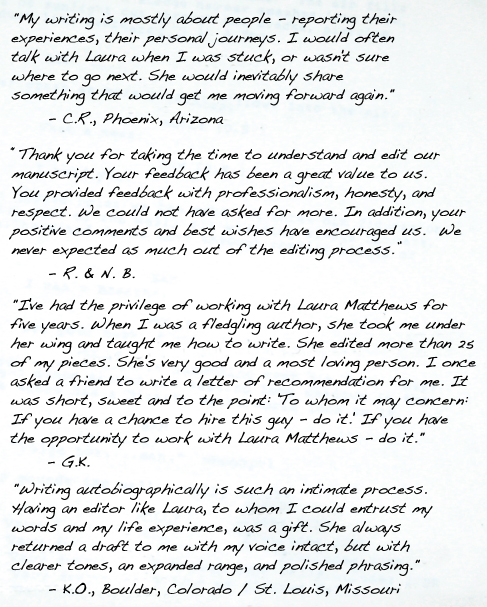 "My writing is mostly about people - reporting their
experiences, their personal journeys. I would often
talk with Laura when I was stuck, or wasn't sure
where to go next. She would inevitably share
something that would get me moving forward again."
- C.R., Phoenix, Arizona
"Thank you for taking the time to understand and edit our
manuscript. Your feedback has been a great value to us.
You provided feedback with professionalism, honesty, and
respect. We could not have asked for more. In addition, your
positive comments and best wishes have encouraged us. We
never expected as much out of the editing process."
- R. & N. B.
"I've had the privilege of working with Laura Matthews for
five years. When I was a fledgling author, she took me under
her wing and taught me how to write. She edited more than 25
of my pieces. She's very good and a most loving person. I once
asked a friend to write a letter of recommendation for me. It
was short, sweet and to the point: 'To whom it may concern:
If you have a chance to hire this guy - do it.' If you have
the opportunity to work with Laura Matthews - do it."
- G.K.
"Writing autobiographically is such an intimate process.
Having an editor like Laura, to whom I could entrust my
words and my life experience, was a gift. She always
returned a draft to me with my voice intact, but with
clearer tones, an expanded range, and polished phrasing."
- K.O., Boulder, Colorado / St. Louis, Missouri